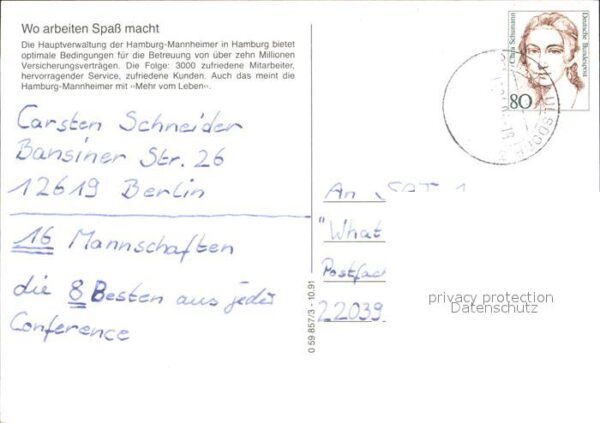 Wo arbeiten Spaß macht
Die Hauptverwaltung der Hamburg-Mannheimer in Hamburg bietet
optimale Bedingungen für die Betreuung von über zehn Millionen
Versicherungsverträgen. Die Folge: 3000 zufriedene Mitarbeiter,
hervorragender Service, zufriedene Kunden. Auch das meint die
Hamburg-Mannheimer mit »Mehr vom Leben«.
Carsten Schneider
Bansiner Str. 26
12619 Berlin
16 Mannschaften
die 8 Besten aus jeder
Conference
0 59 857/3 - 10.91
Clara Schumann
Deutsche Bundespost
80
An SAT 1
"What
Postfac
22039
privacy protection
Datenschutz